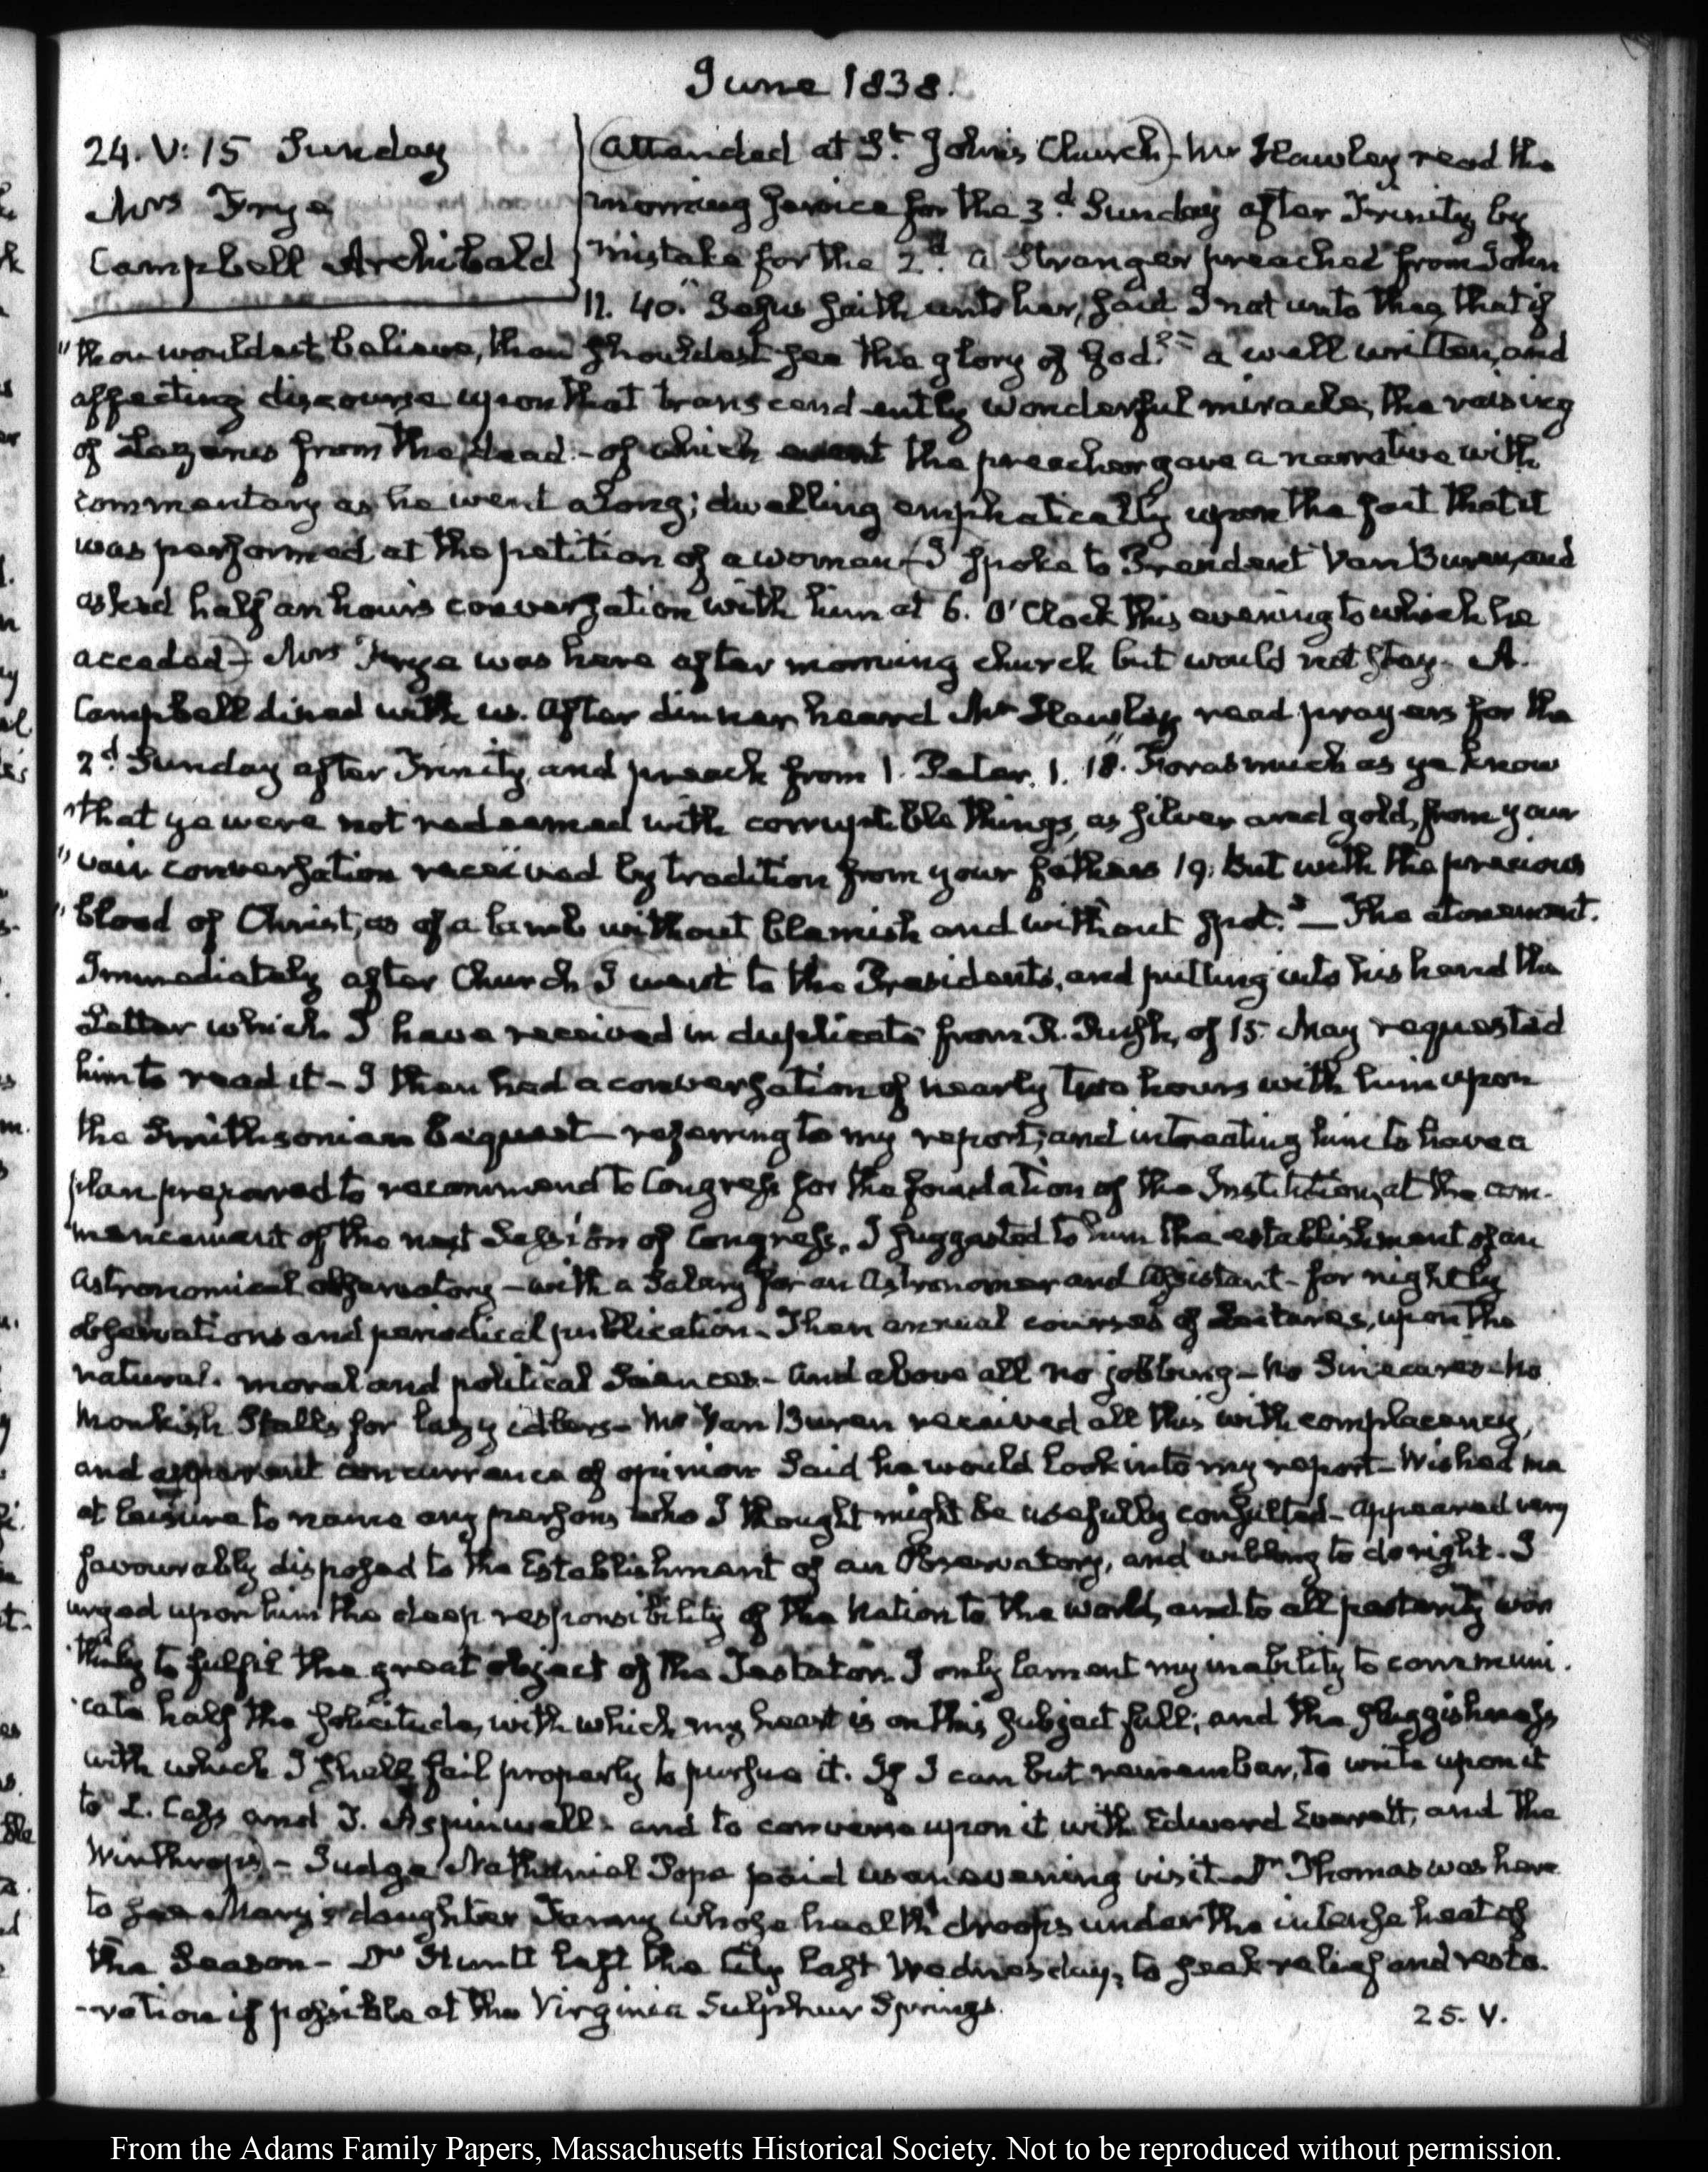 June 1838.
24. V: 15 Sunday
Mrs Frye
Campbell Archibald
(Attended at St. John's Church)- Mr Hawley read the
morning service for the 3d. Sunday after Trinity by
mistake for the 2d. a Stranger preached from John
11. 40. "Jesus saith unto her, said I not unto thee, that if
"thou wouldest believe, thou shouldest see the glory of God?" a well written, and
affecting discourse upon that transcendently wonderful miracle, the raising
of Lazarus from the dead - of which event the preacher gave a narrative with
commentary as he went along; dwelling emphatically upon the fact that it
was performed at the petition of a woman (I spoke to President Van Buren, and
asked half an hour's conversation with him at 6. O'Clock this evening to which he
acceded)- Mrs Frye was here after morning church but would not stay. A.
Campbell dined with us. After dinner heard Mr Hawley read prayers for the
2d. Sunday after Trinity, and preach from 1. Peter. 1. 18. "Forasmuch as ye know
"that ye were not redeemed with corruptible things, as silver and gold, from your
"vain conversation received by tradition from your fathers 19. But with the precious
"blood of Christ, as of a lamb without blemish and without spot." — The atonement.
Immediately after Church I went to the President's, and putting into his hand the
Letter which I have received in duplicate from R. Rush, of 15. May requested
him to read it - I then had a conversation of nearly two hours with him upon
the Smithsonian bequest - referring to my report, and intreating him to have a
plan prepared to recommend to Congress for the foundation of the Institution, at the com-
mencement of the next Session of Congress. I suggested to him the establishment of an
Astronomical observatory - with a Salary for an Astronomer and Assistant - for nightly
observations and periodical publication. Then annual courses of Lectures, upon the
natural. moral and political Sciences - And above all no jobbing - No Sinecures - No
Monkish Stalls for lazy idlers - Mr Van Buren received all this with complacency,
and apparent concurrence of opinion Said he would look into my report - Wished me
at leisure to name any persons who I thought might be usefully consulted - appeared very
favourably disposed to the Establishment of an Observatory, and willing to do right. I
urged upon him the deep responsibility of the Nation to the world, and to all posterity wor
thily to fulfil the great object of the Testator. I only lament my inability to communi-
cate half the solicitude, with which my heart is on this subject full; and the sluggishness
with which I shall fail properly to pursue it. If I can but remember, to write upon it
to L. Cass and T. Aspinwall - and to converse upon it with Edward Everett, and the
Winthrops) - Judge Nathaniel Pope paid us an evening visit - Dr Thomas was here
to see Mary's daughter Fanny whose health droops under the intense heat of
the Season - Dr Huntt left the City last Wednesday, to seek relief and resto-
-ration if possible at the Virginia Sulphur Springs.
25. V.
From the Adams Family Papers, Massachusetts Historical Society. Not to be reproduced without permission.